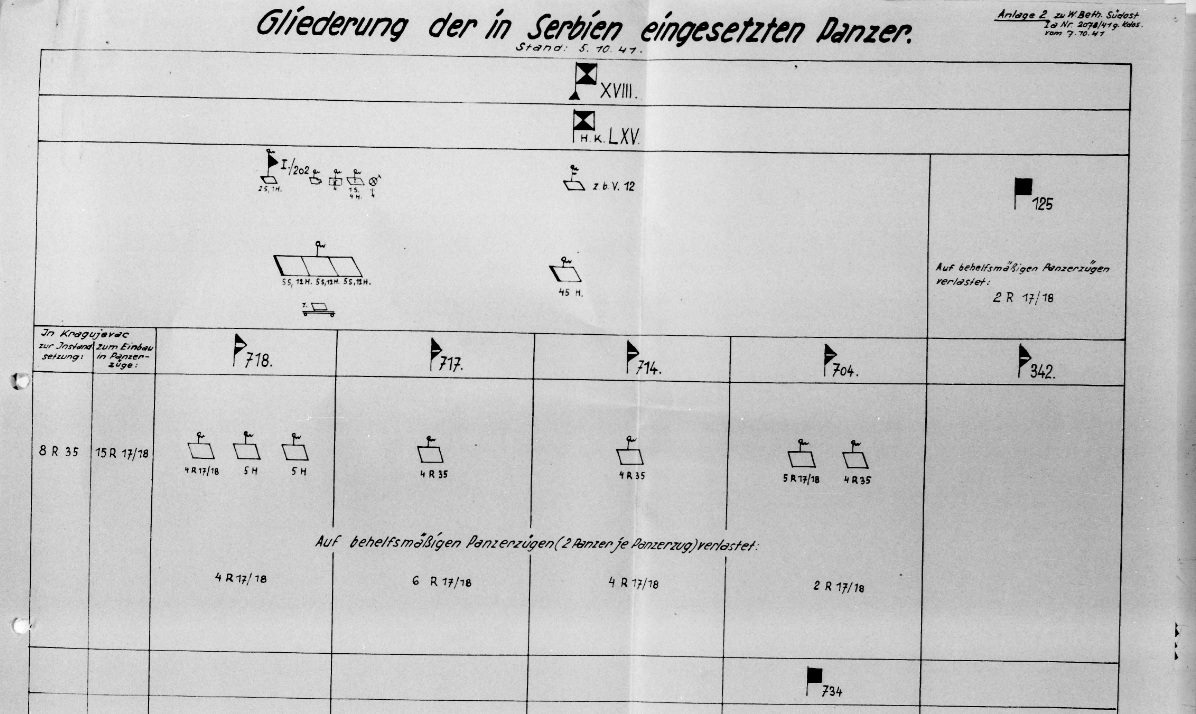 Gliederung der in Serbien eingesetzten Panzer.
Stand: 5. 10. 41.
Anlage 2 zu W. Beth. Südost
Ia Nr. 2078/41 g. Kdos.
vom 7.10.41
XVIII.
H. K. LXV.
I./202
2 S, 1 H.
1 S.
4 H.
z. b. V. 12
125
5 S, 12 H. 5 S, 12 H. 5 S, 12 H.
45 H.
Auf behelfsmäßigen Panzerzügen
verlastet:
2 R 17/18
In Kragujevac
zur Instand
setzung:
zum Einbau
in Panzer-
züge:
718.
717.
714.
704.
342.
8 R 35
15 R 17/18
4 R 17/18
5 H
5 H
4 R 35
4 R 35
5 R 17/18
4 R 35
Auf behelfsmäßigen Panzerzügen (2 Panzer je Panzerzug) verlastet:
4 R 17/18
6 R 17/18
4 R 17/18
2 R 17/18
734